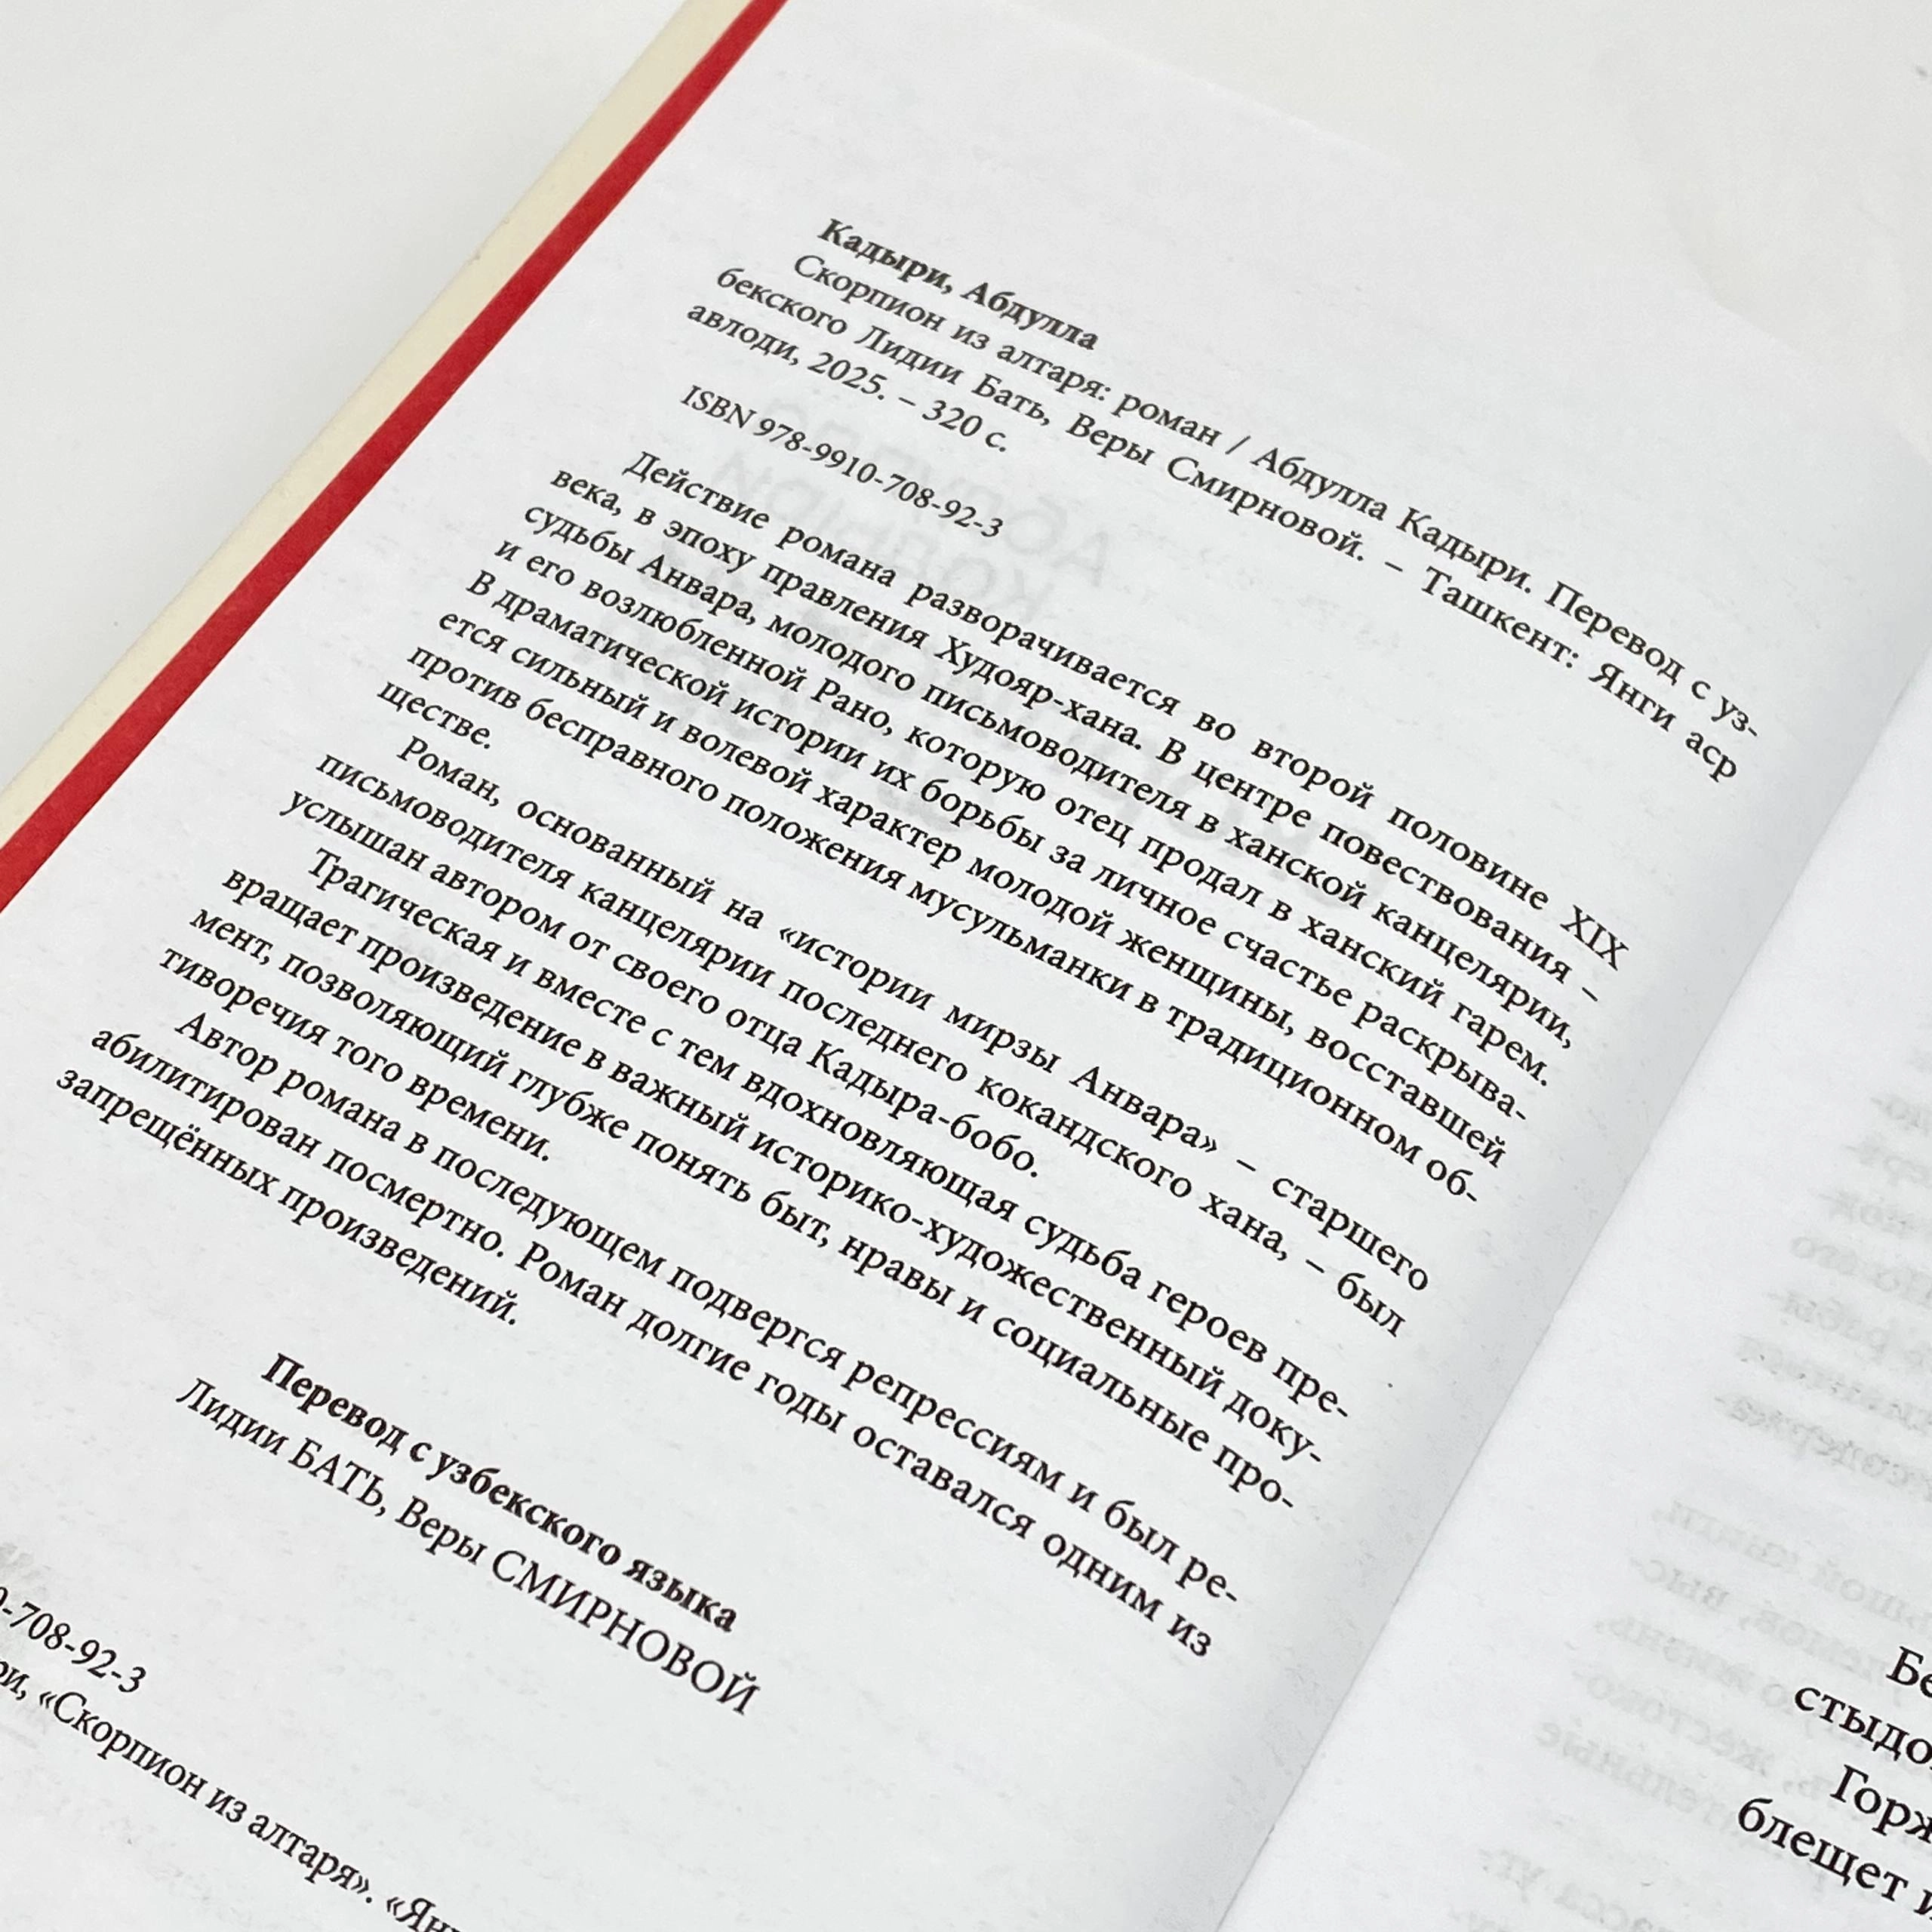 Кадыри, Абдулла
Скорпион из алтаря: роман / Абдулла Кадыри. Перевод с уз-
бекского Лидии Бать, Веры Смирновой. – Ташкент: Янги аср
авлоди, 2025. – 320 с.
ISBN 978-9910-708-92-3
Действие романа разворачивается во второй половине XIX
века, в эпоху правления Худояр-хана. В центре повествования –
судьбы Анвара, молодого письмоводителя в ханской канцелярии,
и его возлюбленной Рано, которую отец продал в ханский гарем.
В драматической истории их борьбы за личное счастье раскрыва-
ется сильный и волевой характер молодой женщины, восставшей
против бесправного положения мусульманки в традиционном об-
ществе.
Роман, основанный на «истории мирзы Анвара» – старшего
письмоводителя канцелярии последнего кокандского хана, – был
услышан автором от своего отца Кадыра-бобо.
Трагическая и вместе с тем вдохновляющая судьба героев пре-
вращает произведение в важный историко-художественный доку-
мент, позволяющий глубже понять быт, нравы и социальные про-
тиворечия того времени.
Автор романа в последующем подвергся репрессиям и был ре-
абилитирован посмертно. Роман долгие годы оставался одним из
запрещённых произведений.
Перевод с узбекского языка
Лидии БАТЬ, Веры СМИРНОВОЙ
-708-92-3
«Скорпион из алтаря».
стыдо
Горж
блещет